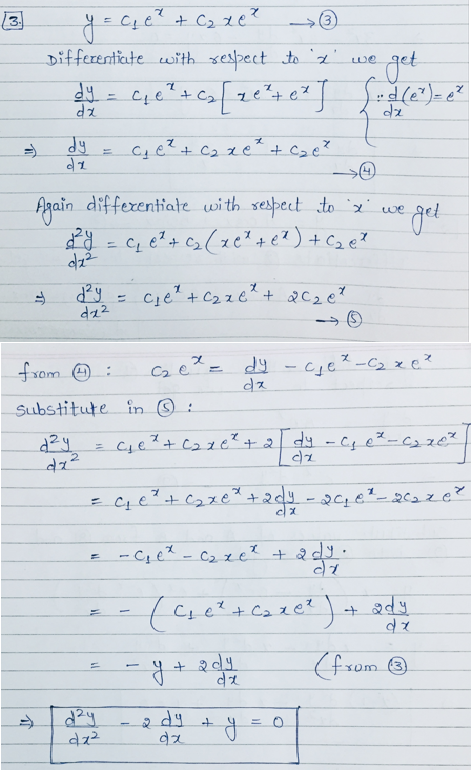 3. y = c₁eˣ + c₂xeˣ → ③
Differentiate with respect to 'x' we get
dy/dx = c₁eˣ + c₂[xeˣ + eˣ] {∵ d/dx(eˣ) = eˣ
⇒ dy/dx = c₁eˣ + c₂xeˣ + c₂eˣ → ④
Again differentiate with respect to 'x' we get
d²y/dx² = c₁eˣ + c₂(xeˣ + eˣ) + c₂eˣ
⇒ d²y/dx² = c₁eˣ + c₂xeˣ + 2c₂eˣ → ⑤
from ④ : c₂eˣ = dy/dx - c₁eˣ - c₂xeˣ
substitute in ⑤ :
d²y/dx² = c₁eˣ + c₂xeˣ + 2[dy/dx - c₁eˣ - c₂xeˣ]
= c₁eˣ + c₂xeˣ + 2dy/dx - 2c₁eˣ - 2c₂xeˣ
= -c₁eˣ - c₂xeˣ + 2dy/dx.
= -(c₁eˣ + c₂xeˣ) + 2dy/dx
= -y + 2dy/dx (from ③
⇒ d²y/dx² - 2dy/dx + y = 0